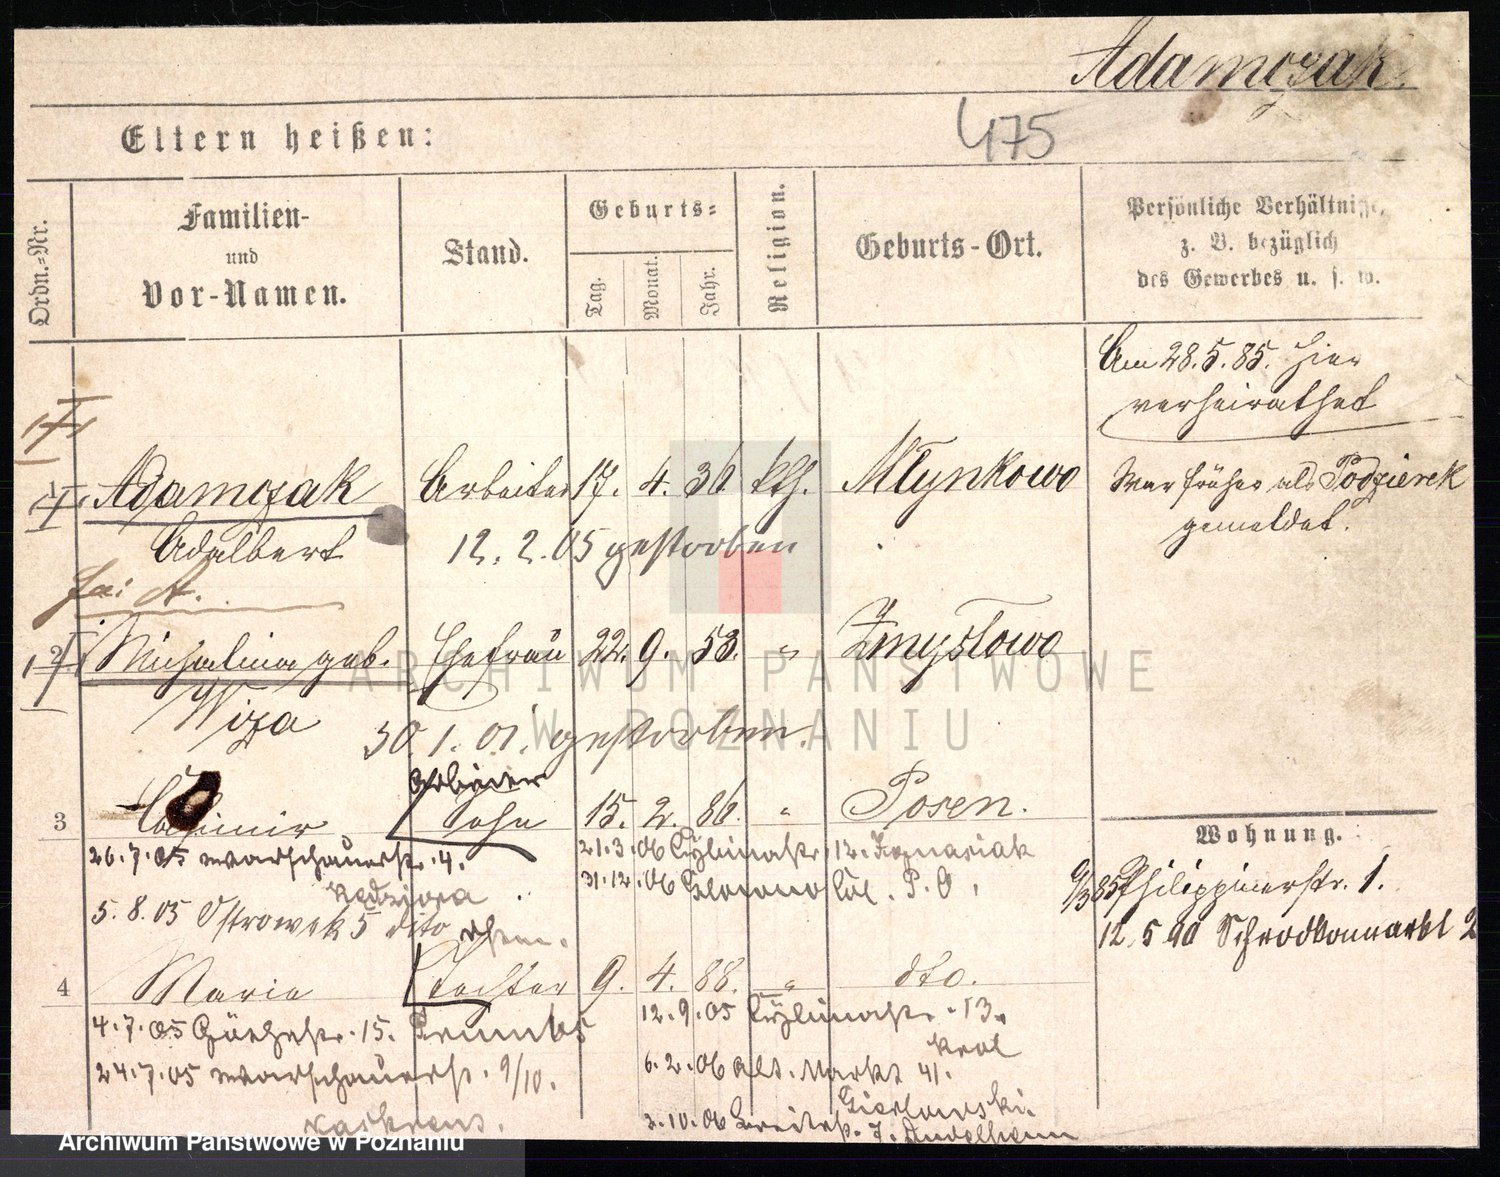 Adamczak.
475
Eltern heißen:
Ordn.-Nr.
Familien-
und
Vor-Namen.
Stand.
Geburts-
Tag.
Monat.
Jahr.
Religion.
Geburts-Ort.
Persönliche Verhältnisse,
z. B. bezüglich
des Gewerbes u. s. w.
Am 28.5.85. hier
verheirathet
1 Adamczak Arbeiter 17. 4. 36 kth. Młynkowo
War früher als Podzierek
gemeldet.
Adalbert 12.2.05 gestorben
2 Michalina geb. Ehefrau 22. 9. 53. " Zmysłowo
Wiza
30.1.01. gestorben.
Arbeiter
3 Casimir Sohn 15. 2. 86. " Posen.
Wohnung.
26.7.05 Warschauerstr. 4.
21.3.06 12.
Kedziora
31.12.06 P. O.
9/3 85 Philippinerstr. 1.
5.8.05 Ostrowek 5 dito
12.5.90 Schrodkamarkt 2
4 Maria Tochter 9. 4. 88. " dto.
4.7.05 15.
12.9.05 13.
Krol
24.7.05 Warschauerstr. 9/10.
6.2.06 Alt. Markt 41.
3.10.06 Breitestr. 7.
ARCHIWUM PAŃSTWOWE
W POZNANIU
Archiwum Państwowe w Poznaniu